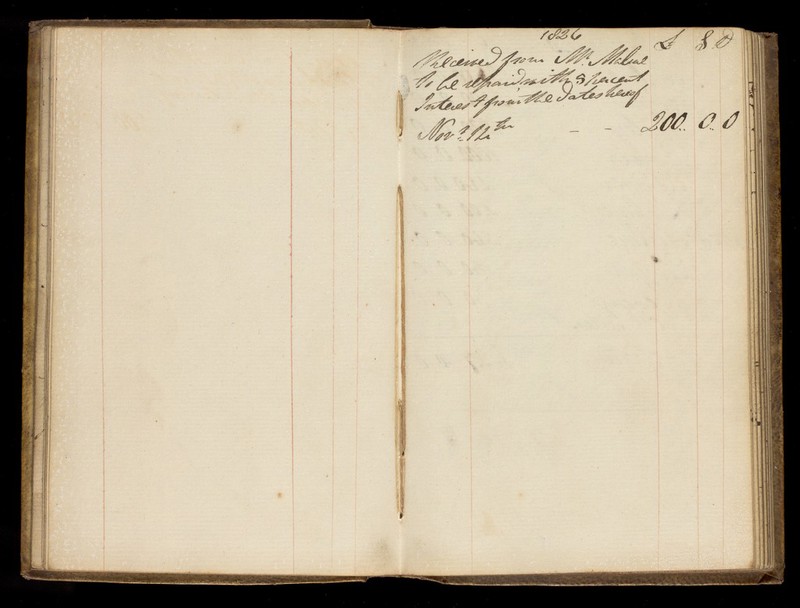 1826
£ S D
Received from Mr.
to be repaid with 8 percent
Interest from the dates hereof
Novr. 12th - - 200.. 0.. 0